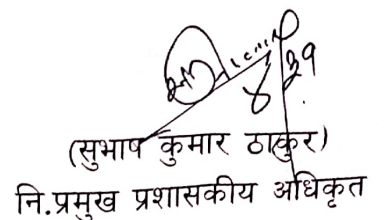 ४
३१
(सुभाष कुमार ठाकुर)
नि.प्रमुख प्रशासकीय अधिकृत